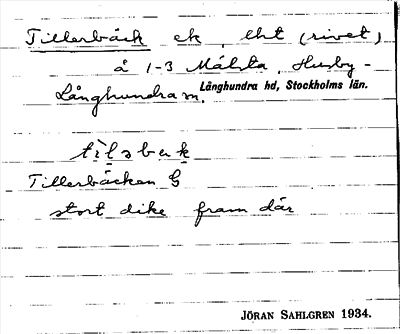 Tillerbäck ek, lht (rivet)
å 1-3 Målsta, Husby-
Långhundra sn. Långhundra hd, Stockholms län.
tìlabɛk
Tillerbäcken G
stort dike fram där
JÖRAN SAHLGREN 1934.